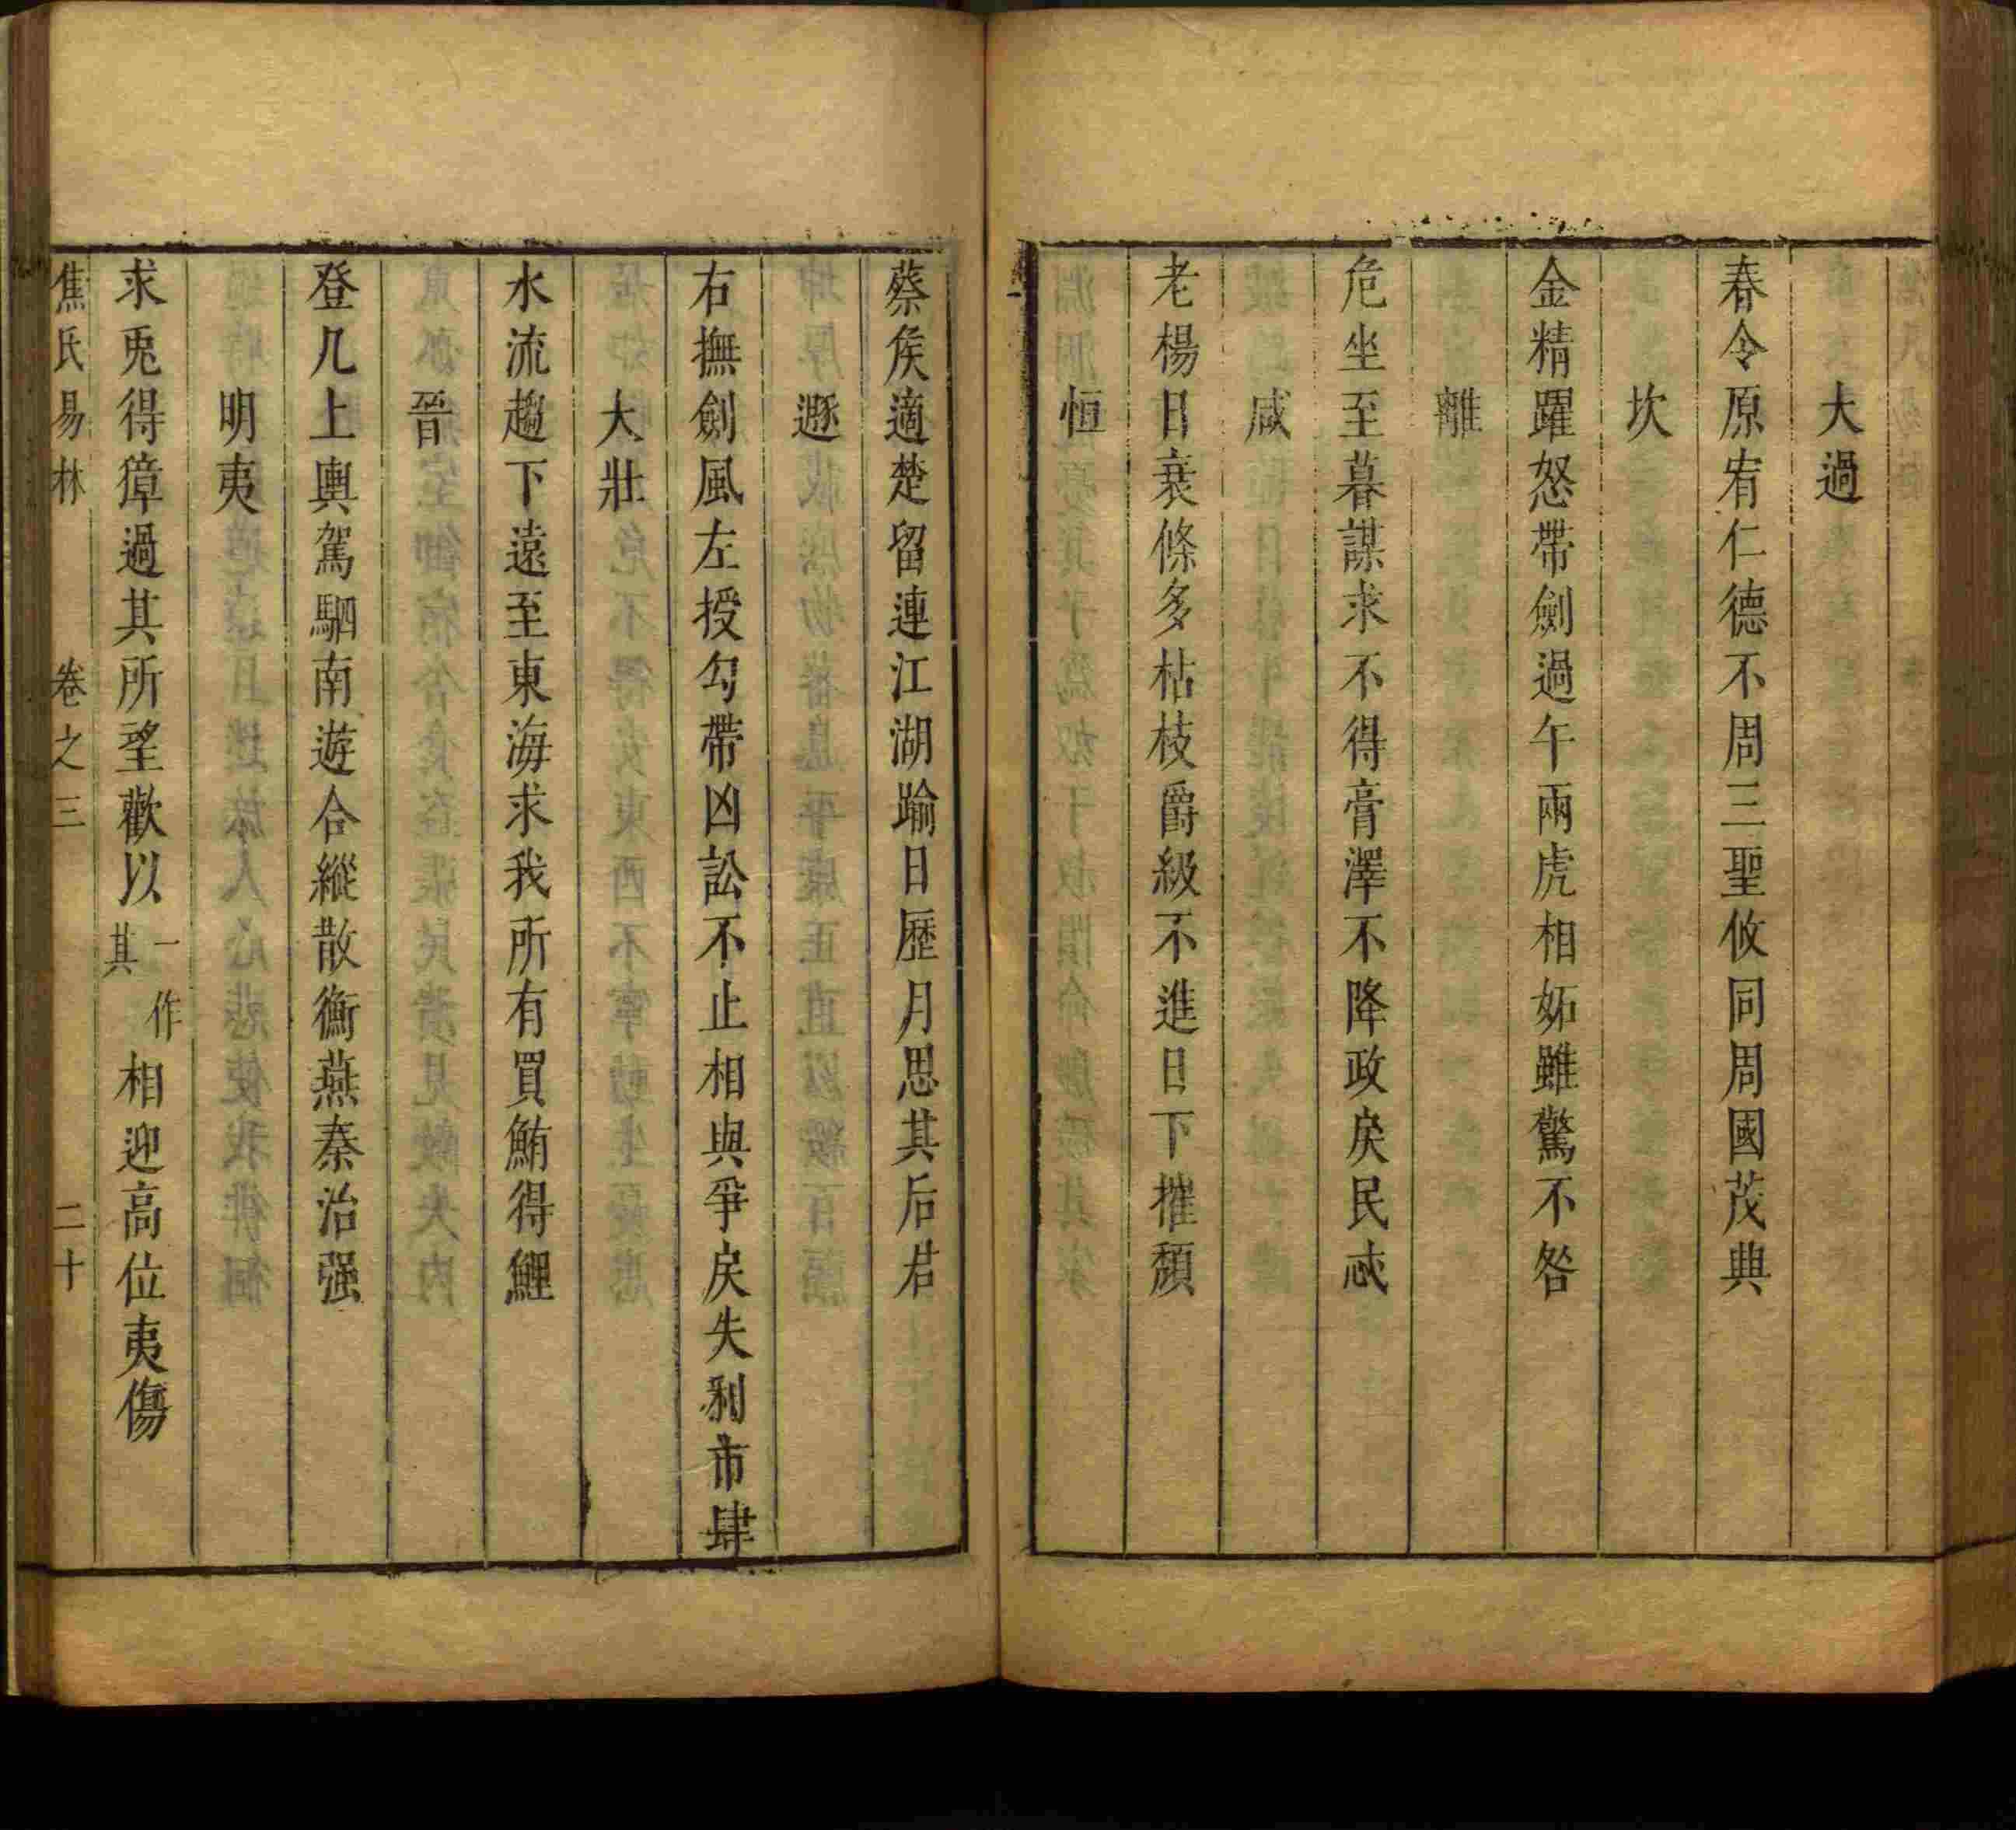 大過
春令原宥仁德不周三聖攸同周國茂典
坎
金精躍怒帶劍過午兩虎相妬雖驚不咎
離
危坐至暮謀求不得膏澤不降政戾民忒
咸
老楊日衰條多枯枝爵級不進日下摧頹
恒
蔡侯適楚留連江湖踰日歷月思其后君
遯
右撫劍風左授勾帶凶訟不止相與爭戾失利市肆
大壯
水流趨下遠至東海求我所有買鮪得鯉
晉
登几上輿駕駟南遊合縱散衡燕秦治强
明夷
求兎得獐過其所望歡以一作其相迎高位夷傷
焦氏易林 卷之三 二十